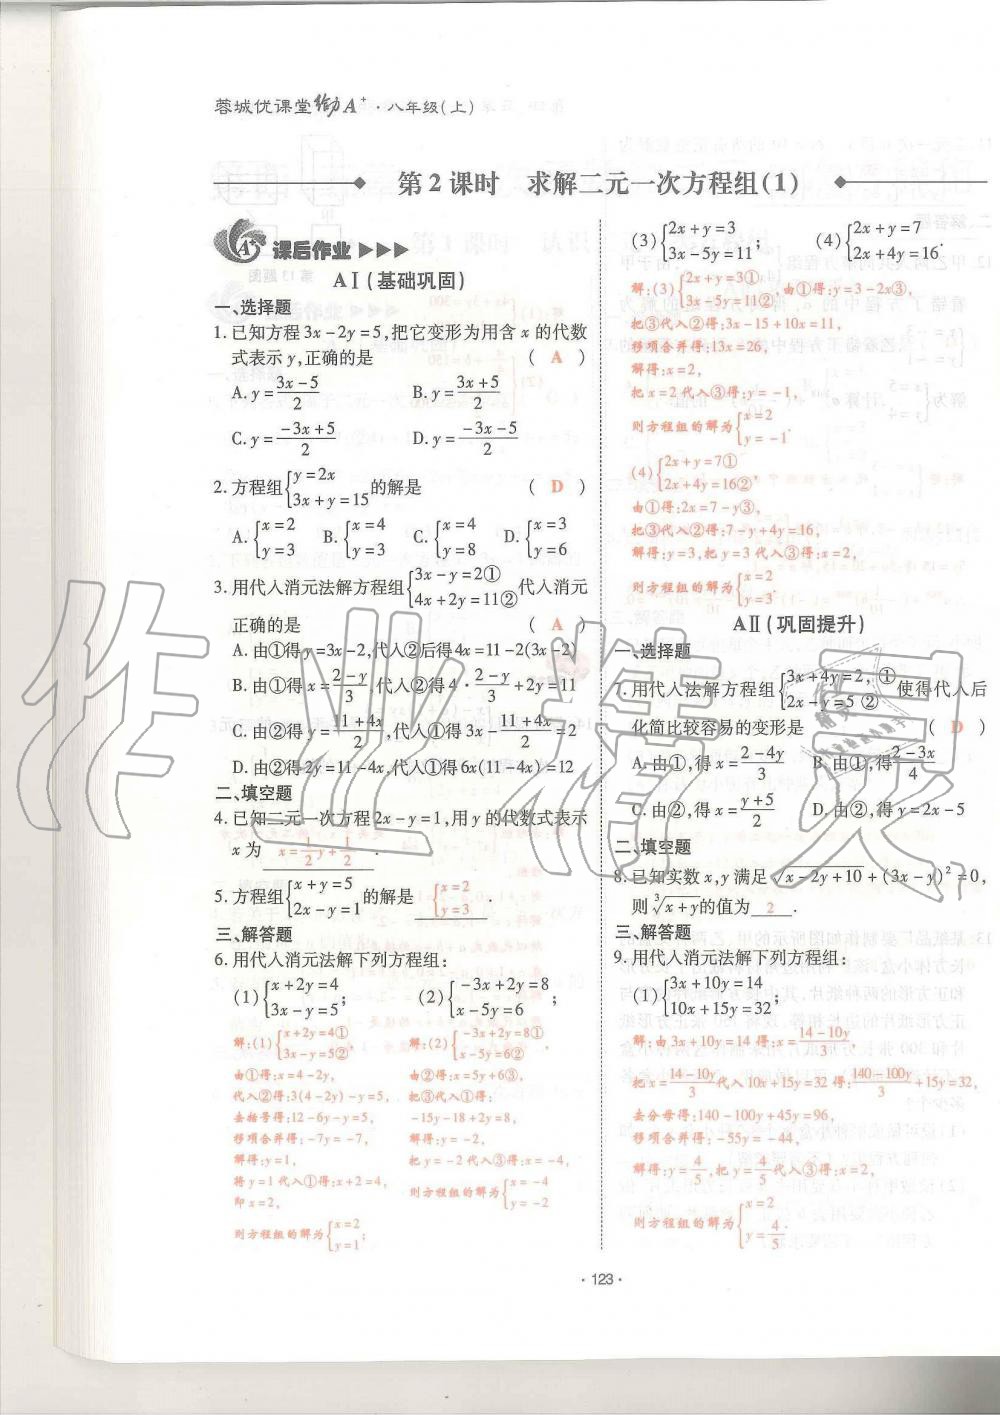 蓉城优课堂 A⁺·八年级(上)
第2课时 求解二元一次方程组(1)
A⁺ 课后作业
AⅠ(基础巩固)
一、选择题
1. 已知方程3x-2y=5,把它变形为用含x的代数
式表示y,正确的是 ( A )
A. y=(3x-5)/2 B. y=(3x+5)/2
C. y=(-3x+5)/2 D. y=(-3x-5)/2
2. 方程组{y=2x 3x+y=15 的解是 ( D )
A. {x=2 y=3 B. {x=4 y=3 C. {x=4 y=8 D. {x=3 y=6
3. 用代入消元法解方程组{3x-y=2① 4x+2y=11② 代入消元
正确的是 ( A )
A. 由①得y=3x-2,代入②后得4x=11-2(3x-2)
B. 由①得x=(2-y)/3,代入②得4·(2-y)/3+2y=11
C. 由②得y=(11+4x)/2,代入①得3x-(11+4x)/2=2
D. 由②得2y=11-4x,代入①得6x(11-4x)=12
二、填空题
4. 已知二元一次方程2x-y=1,用y的代数式表示
x为 x=1/2y+1/2 .
5. 方程组{x+y=5 2x-y=1 的解是 {x=2 y=3 .
三、解答题
6. 用代入消元法解下列方程组:
(1){x+2y=4 3x-y=5; (2){-3x+2y=8 x-5y=6;
解:(1){x+2y=4① 3x-y=5②
由①得:x=4-2y,
代入②得:3(4-2y)-y=5,
去括号得:12-6y-y=5,
移项合并得:-7y=-7,
解得:y=1,
将y=1代入①得:x+2=4,
即x=2,
则方程组的解为{x=2 y=1;
解:(2){-3x+2y=8① x-5y=6②
由②得:x=5y+6③,
把③代入①得:
-15y-18+2y=8,
解得:y=-2,
把y=-2代入③得:x=-4,
则方程组的解为{x=-4 y=-2
(3){2x+y=3 3x-5y=11; (4){2x+y=7 2x+4y=16.
解:(3){2x+y=3① 3x-5y=11② ,由①得:y=3-2x③,
把③代入②得:3x-15+10x=11,
移项合并得:13x=26,
解得:x=2,
把x=2代入③得:y=-1,
则方程组的解为{x=2 y=-1.
(4){2x+y=7① 2x+4y=16②
由①得:2x=7-y③,
把③代入②得:7-y+4y=16,
解得:y=3,把y=3代入③得:x=2,
则方程组的解为{x=2 y=3.
AⅡ(巩固提升)
一、选择题
7. 用代入法解方程组{3x+4y=2,① 2x-y=5 ② 使得代入后
化简比较容易的变形是 ( D )
A. 由①,得x=(2-4y)/3 B. 由①,得y=(2-3x)/4
C. 由②,得x=(y+5)/2 D. 由②,得y=2x-5
二、填空题
8. 已知实数x,y满足√(x-2y+10)+(3x-y)²=0,
则∛(x+y)的值为 2 .
三、解答题
9. 用代入消元法解下列方程组:
(1){3x+10y=14 10x+15y=32;
解:由3x+10y=14得:x=(14-10y)/3,
把x=(14-10y)/3代入10x+15y=32得:(140-100y)/3+15y=32,
去分母得:140-100y+45y=96,
移项合并得:-55y=-44,
解得:y=4/5,把y=4/5代入①得:x=2,
则方程组的解为{x=2 y=4/5.
·123·
作业精灵